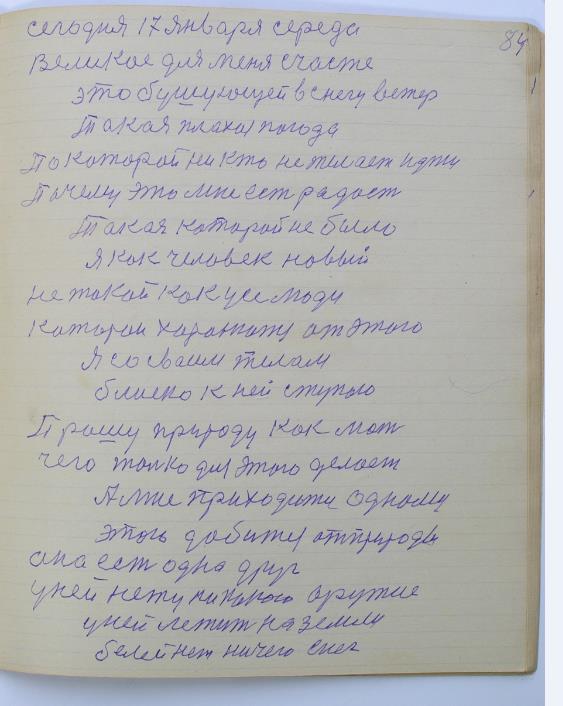 84
сегодня 17 января середа
Великое для меня счасте
это бушующей в снегу ветер
Такая плахая погода
По которой никто не желает идти
Почему это мне ест радост
Такая которой не было
Я как человек новый
не такой как усе люди
которои харанжацу от этого
Я со сваим телам
близко к ней ступаю
Прошу природу как мат
чего толко для этого делает
А мне приходити одному
этого добитися от природы
она ест одна друг
у ней нету никакого оружие
у ней лежит на земли
белей нет ничего снег